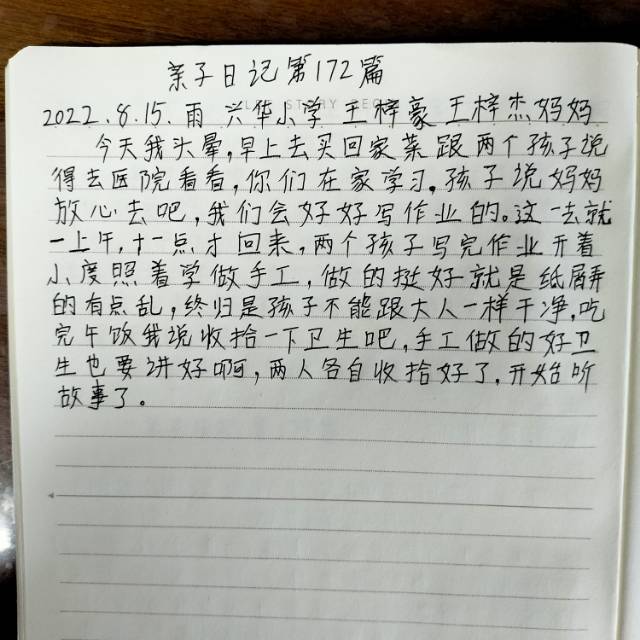 亲子日记第172篇
2022.8.15.雨 兴华小学 王梓豪 王梓杰妈妈
今天我头晕,早上去买回家菜跟两个孩子说
得去医院看看,你们在家学习,孩子说妈妈
放心去吧,我们会好好写作业的。这一去就
一上午,十一点才回来,两个孩子写完作业开着
小度照着学做手工,做的挺好就是纸屑弄
的有点乱,终归是孩子不能跟大人一样干净,吃
完午饭我说收拾一下卫生吧,手工做的好卫
生也要讲好啊,两人各自收拾好了,开始听
故事了。